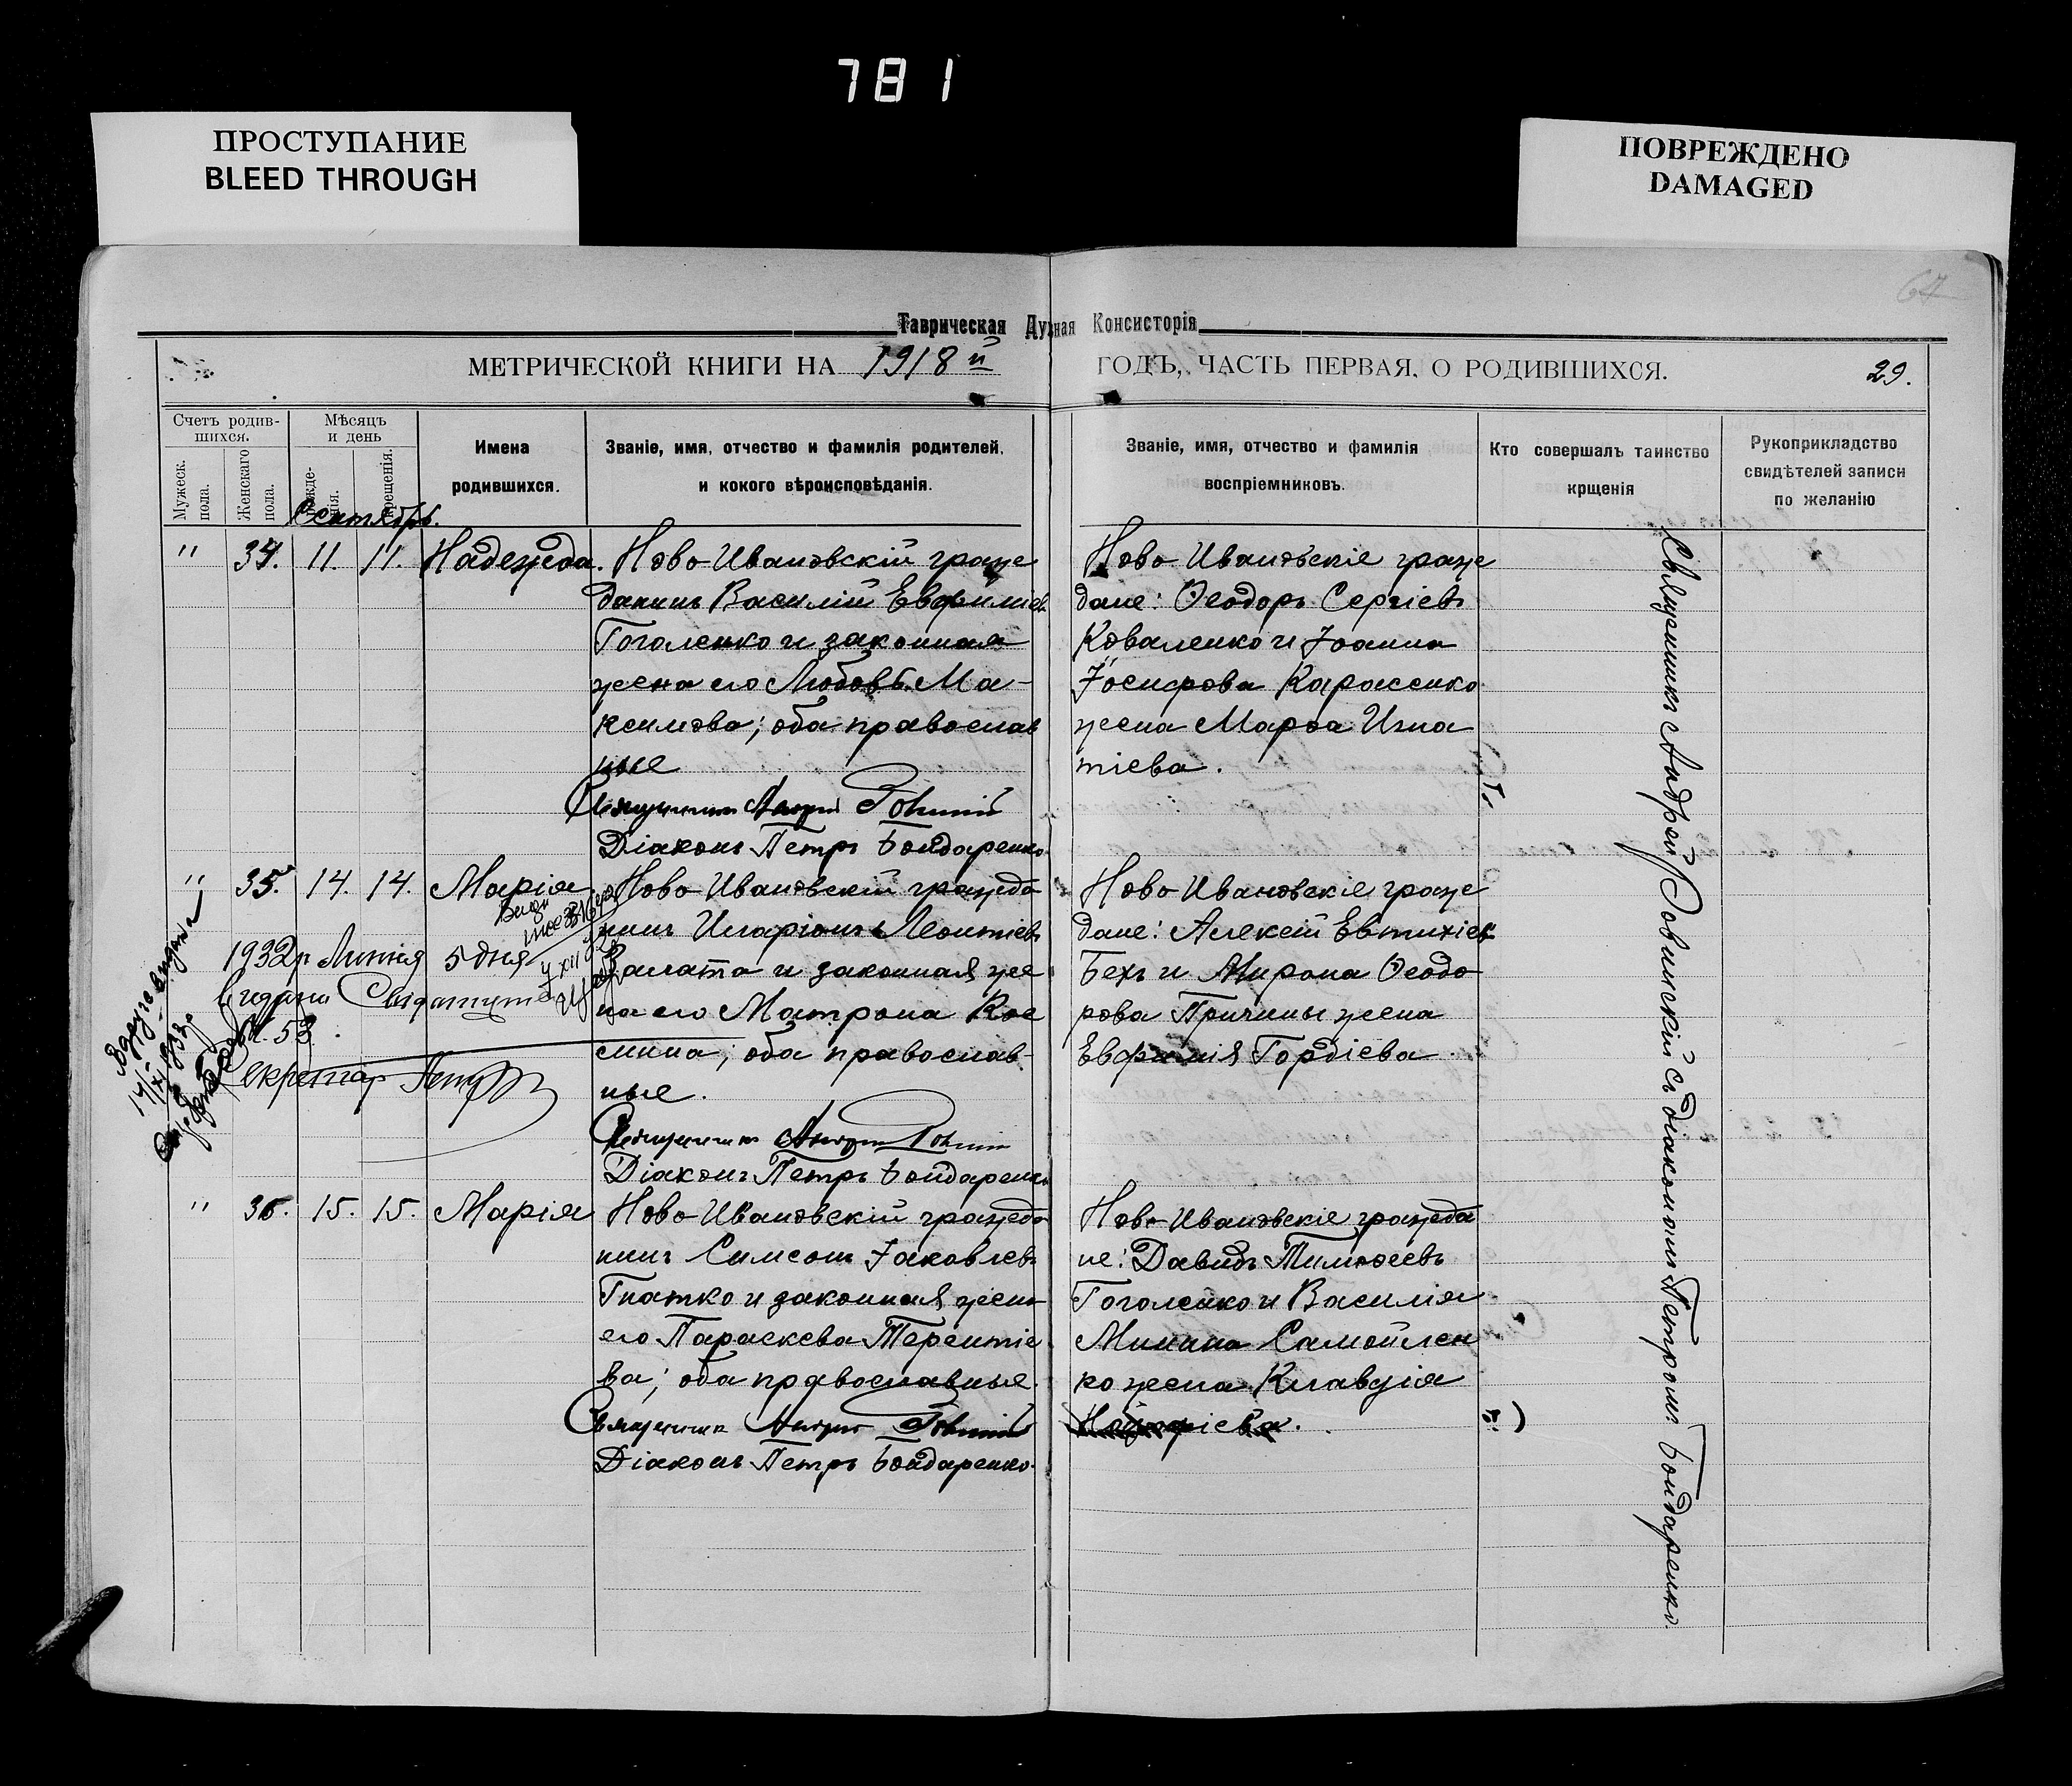 781
ПРОСТУПАНИЕ
BLEED THROUGH
ПОВРЕЖДЕНО
DAMAGED
64
Таврическая Духвная Консисторія
МЕТРИЧЕСКОЙ КНИГИ НА 1918й ГОДЪ, ЧАСТЬ ПЕРВАЯ, О РОДИВШИХСЯ. 29.
Счетъ родив-
шихся.
Мужеск.
пола.
Женскаго
пола.
Мѣсяцъ
и день
рожде-
нія.
крещенія.
Имена
родившихся.
Званіе, имя, отчество и фамилія родителей,
и кокого вѣроисповѣданія.
Званіе, имя, отчество и фамилія
воспріемниковъ.
Кто совершалъ таинство
крщенія
Рукоприкладство
свидѣтелей записи
по желанію
Сентябрь.
" 34. 11. 11. Надежда.
Ново-Ивановскій граж
данинъ Василій Евфиміевъ
Гоголенко и законная
жена его Любовь Ма-
ксимова; оба православ
ные
Священникъ Андрей
Діаконъ Петръ Бондаренко
Ново-Ивановскіе граж
дане: Ѳеодоръ Сергіевъ
Коваленко и Іоанна
Іосифова Карасенко
жена Марѳа Игна
тіева.
" 35. 14. 14. Марія.
Ново-Ивановскій гражда
нинъ Иларіонъ Леонтіевъ
Галата и законная же
на его Матрона Кос
мина; оба православ-
ные.
Священникъ Андрей
Діаконъ Петръ Бондаренко
Ново-Ивановскіе граж
дане: Алексій Евтихіевъ
Бехъ и Мирона Ѳеодо
рова Причины жена
Евфимія Гордіева
1932р Липня 5 дня
Видани
№ 53
Секретар
" 36. 15. 15. Марія
Ново-Ивановскій гражда
нинъ Симеонъ Іаковлевъ
Гнатко и законная жена
его Параскева Терентіе
ва; оба православные.
Священникъ Андрей
Діаконъ Петръ Бондаренко.
Ново-Ивановскіе гражда
не: Давидъ Тимоѳеевъ
Гоголенко и Василія
Минина Самойлен
ко жена Клавдія
Священникъ Андрей Ровинскій съ діакономъ Петромъ Бондаренко.